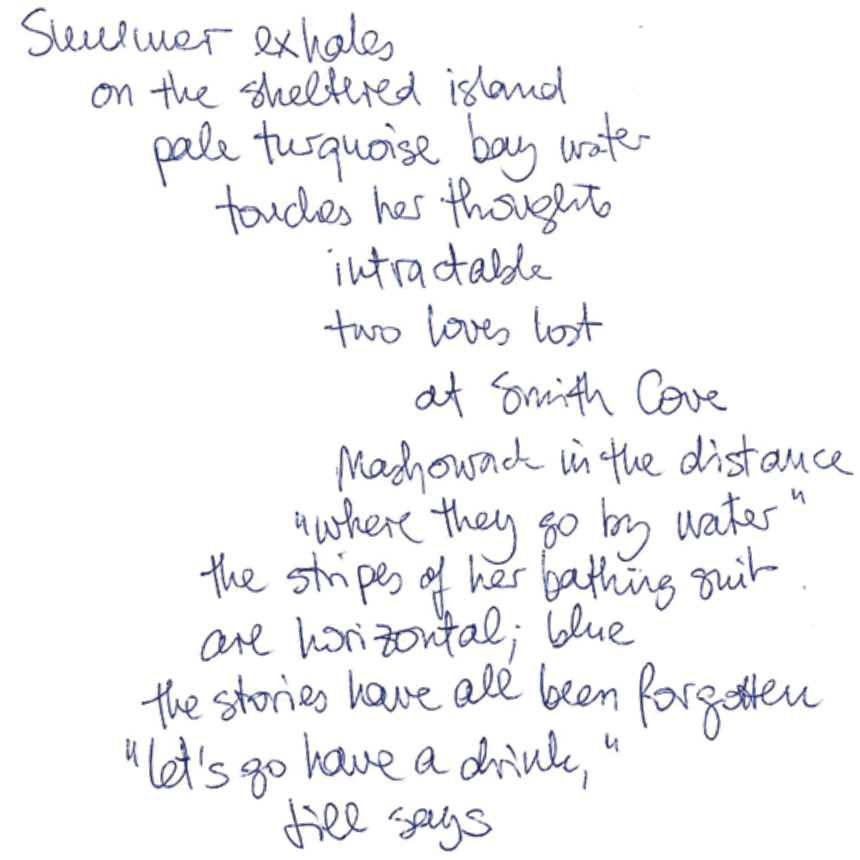 Summer exhales
on the sheltered island
pale turquoise bay water
touches her thoughts
intractable
two loves lost
at Smith Cove
Mashowack in the distance
"where they go by water"
the stripes of her bathing suit
are horizontal; blue
the stories have all been forgotten
"let's go have a drink,"
Jill says